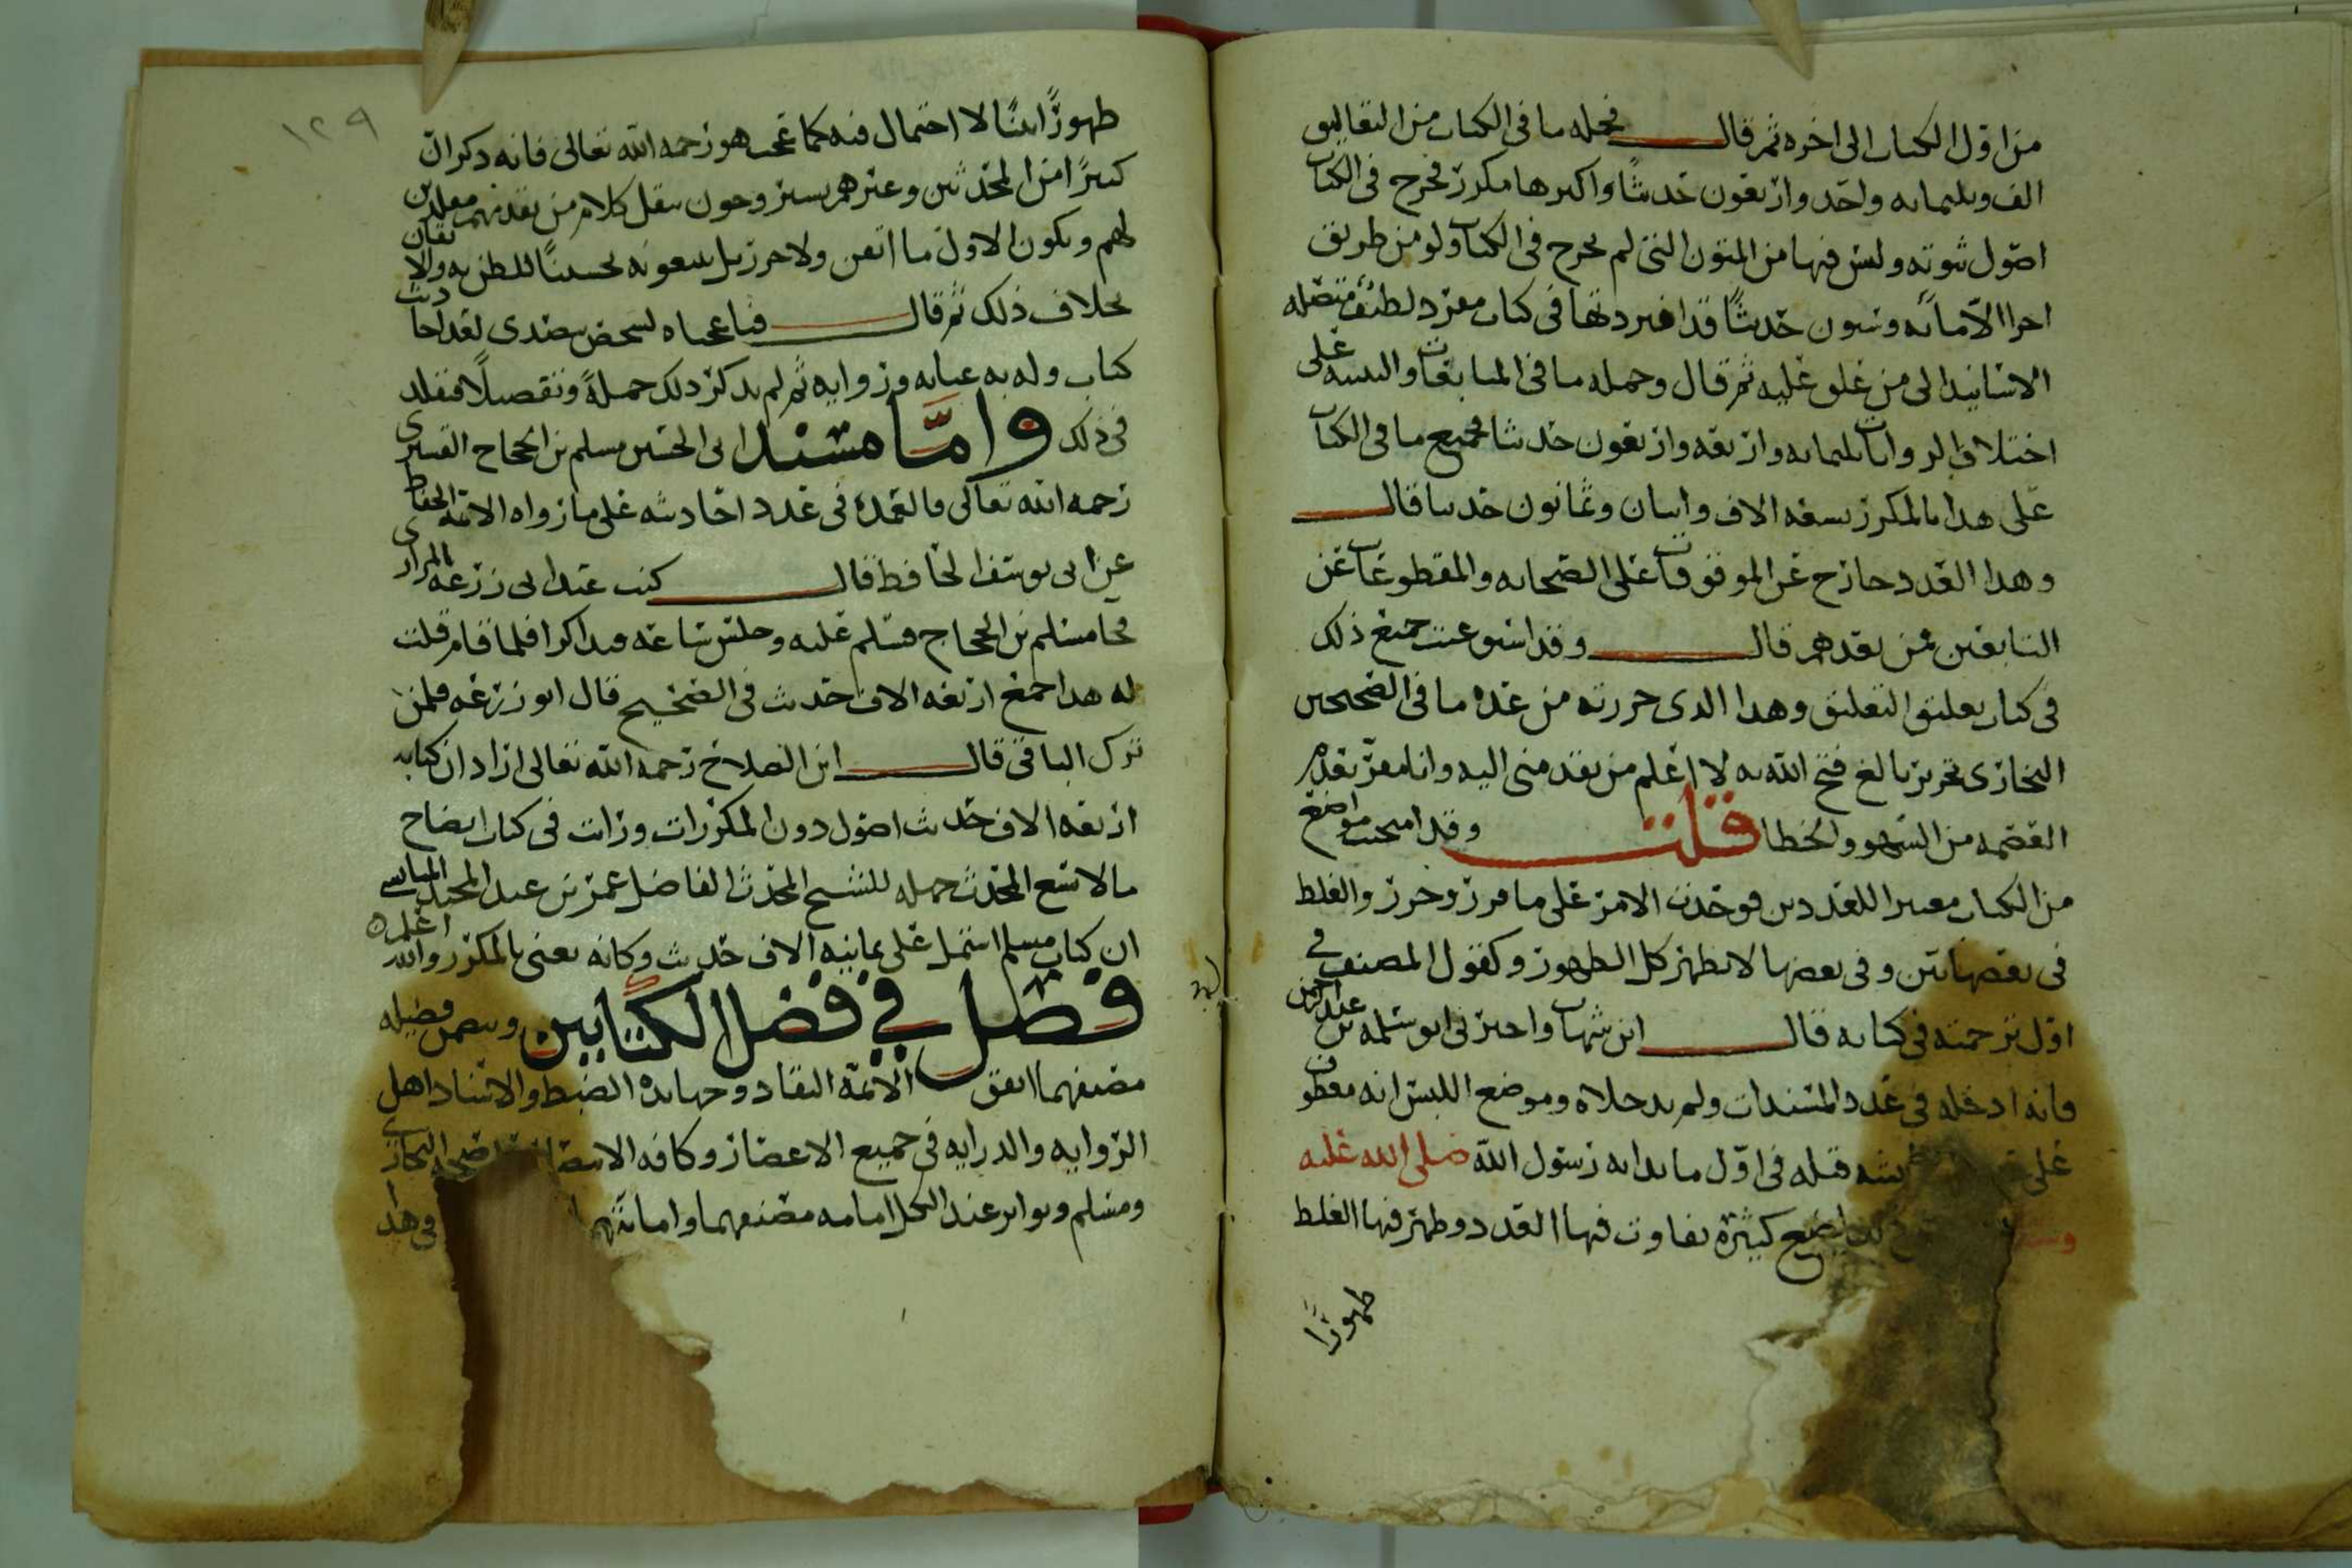 من اول الكتاب الى اخره ثم قال فجمله ما فى الكتاب من التعاليق
الف وثلثمائه واحد واربعون حديثًا واكثرها مكرر مخرج فى الكتاب
اصول متونه وليس فيها من المتون التى لم يخرج فى الكتاب ولو من طريق
اخرا الا مائه وستون حديثًا قد افردتها فى كتاب مفرد لطيف متصله
الاسانيد الى من علق عليه ثم قال وجمله ما فى المتابعات والتنبيه على
اختلاف الروايات ثلثمائه واربعه واربعون حديثا فجميع ما فى الكتاب
على هذا بالمكرر تسعه الاف واثنان وثمانون حديثا قال
وهذا العدد خارج عن الموقوفات على الصحابه والمقطوعات عن
التابعين فمن بعدهم قال وقد استوعبت جميع ذلك
فى كتاب تعليق التعليق وهذا الذى حررته من عده ما فى الصحيحين
البخارى تحرير بالغ فتح الله به لا اعلم من تقدمنى اليه وانا مقر بعدم
العصمه من السهو والخطا قلت وقد امتحنت مواضع
من الكتاب معتبرا للعددين فوجدت الامر على ما قرر وحرر والغلط
فى بعضها بين وفى بعضها لا يظهر كل الظهور وكقول المصنف فى
اول ترجمته فى كتابه قال ابن شهاب واخبرنى ابو سلمه بن عبد الرحمن
فانه ادخله فى عدد المسندات ولم يدخلاه وموضع اللبس انه معطوف
على قبله فى اول ما بدا به رسول الله صلى الله عليه
مواضع كثيرة تفاوت فيها العدد وظهر فيها الغلط
ظهورًا
١٢٩
ظهورًا بينًا لا احتمال فيه كما عجب هو رحمه الله تعالى فانه ذكر ان
كثيرًا من المحدثين وغيرهم يستروحون بنقل كلام من تقدمهم مقلدين
لهم ويكون الاول ما اتقن ولا حرر بل يتبعونه تحسينًا للظن به والاتقان
بخلاف ذلك ثم قال فيا عجباه لشخص يتصدى لعد احاديث
كتاب وله به عنايه وروايه ثم لم يذكر ذلك جملةً وتفصيلًا فيقلد
فى ذلك واما مسند ابى الحسين مسلم بن الحجاج القشيرى
رحمه الله تعالى فالعمدة فى عدد احاديثه على ما رواه الائمه الحفاظ
عن ابى يوسف الحافظ قال كنت عند ابى زرعه الرازى
فجا مسلم بن الحجاج فسلم عليه وجلس ساعه وتذاكرا فلما قام قلت
له هذا جمع اربعه الاف حديث فى الصحيح قال ابو زرعه فلمن
ترك الباقى قال ابن الصلاح رحمه الله تعالى اراد ان كتابه
اربعه الاف حديث اصول دون المكررات ورات فى كتاب ايضاح
ما لا يسع المحدث جهله للشيخ المحدث الفاضل عمر بن عبد المجيد الميانشى
ان كتاب مسلم اشتمل على ثمانيه الاف حديث وكانه يعنى بالمكرر والله اعلم
فصل فى فضل الكتابين ويتضمن فضيله
مصنفيهما اتفق الائمه النقاد وجهابذه الضبط والاسناد اهل
الروايه والدرايه فى جميع الاعصار وكافه الامصار البخارى
ومسلم وتواتر عند الكل امامه مصنفيهما وامانتهم وهذا